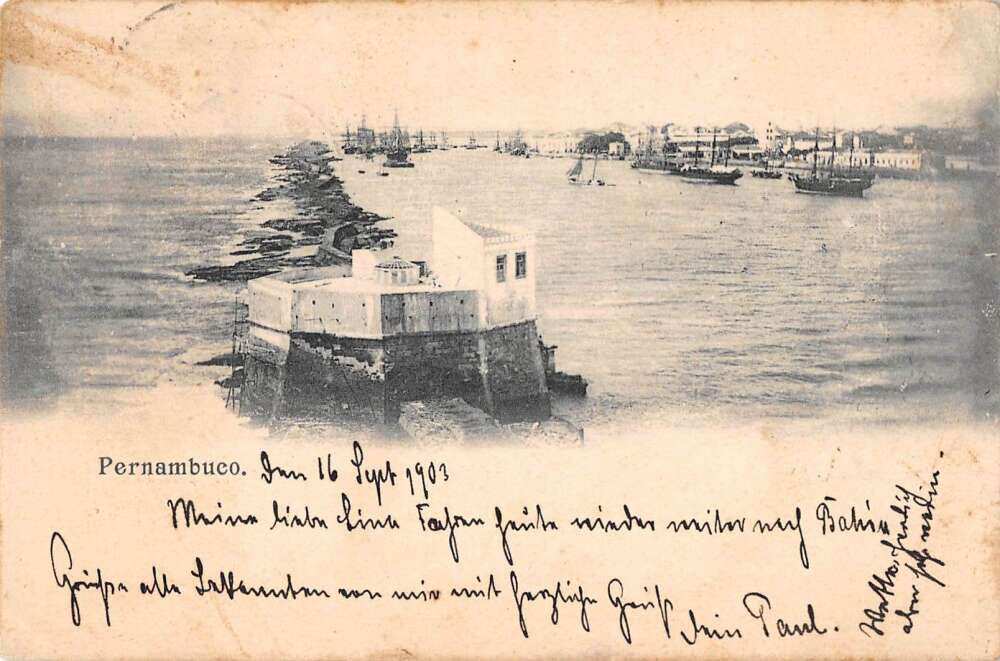 Pernambuco. Den 16 Sept 1903
Meine liebe Lina Fahren heute wieder weiter nach Bahia
Grüße alle Bekannten von mir mit herzliche Gruß Dein Paul.
aber sehr